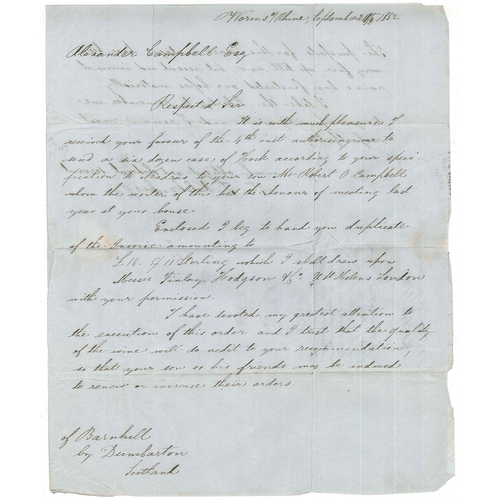 Worms s/Rhine, September 1852
Alexander Campbell Esq
Respected Sir
It is with much pleasure I
received your favour of the 4th inst authorising me to
send a six dozen cases of Hock according to your speci
fication to Madras to your son Mr Robert D Campbell
whom the writer of this had the honour of meeting last
year at your house.
Enclosed I beg to hand you duplicate
of the Invoice amounting to
£16. 9/11 Sterling which I shall draw upon
Messrs Finlay Hodgson & Co St Helens London
with your permission.
I have devoted my greatest attention to
the execution of this order and I trust that the quality
of the wine will do credit to your recommendation,
so that your son or his friends may be induced
to renew or increase their orders
of Barnhill
by Dumbarton
Scotland